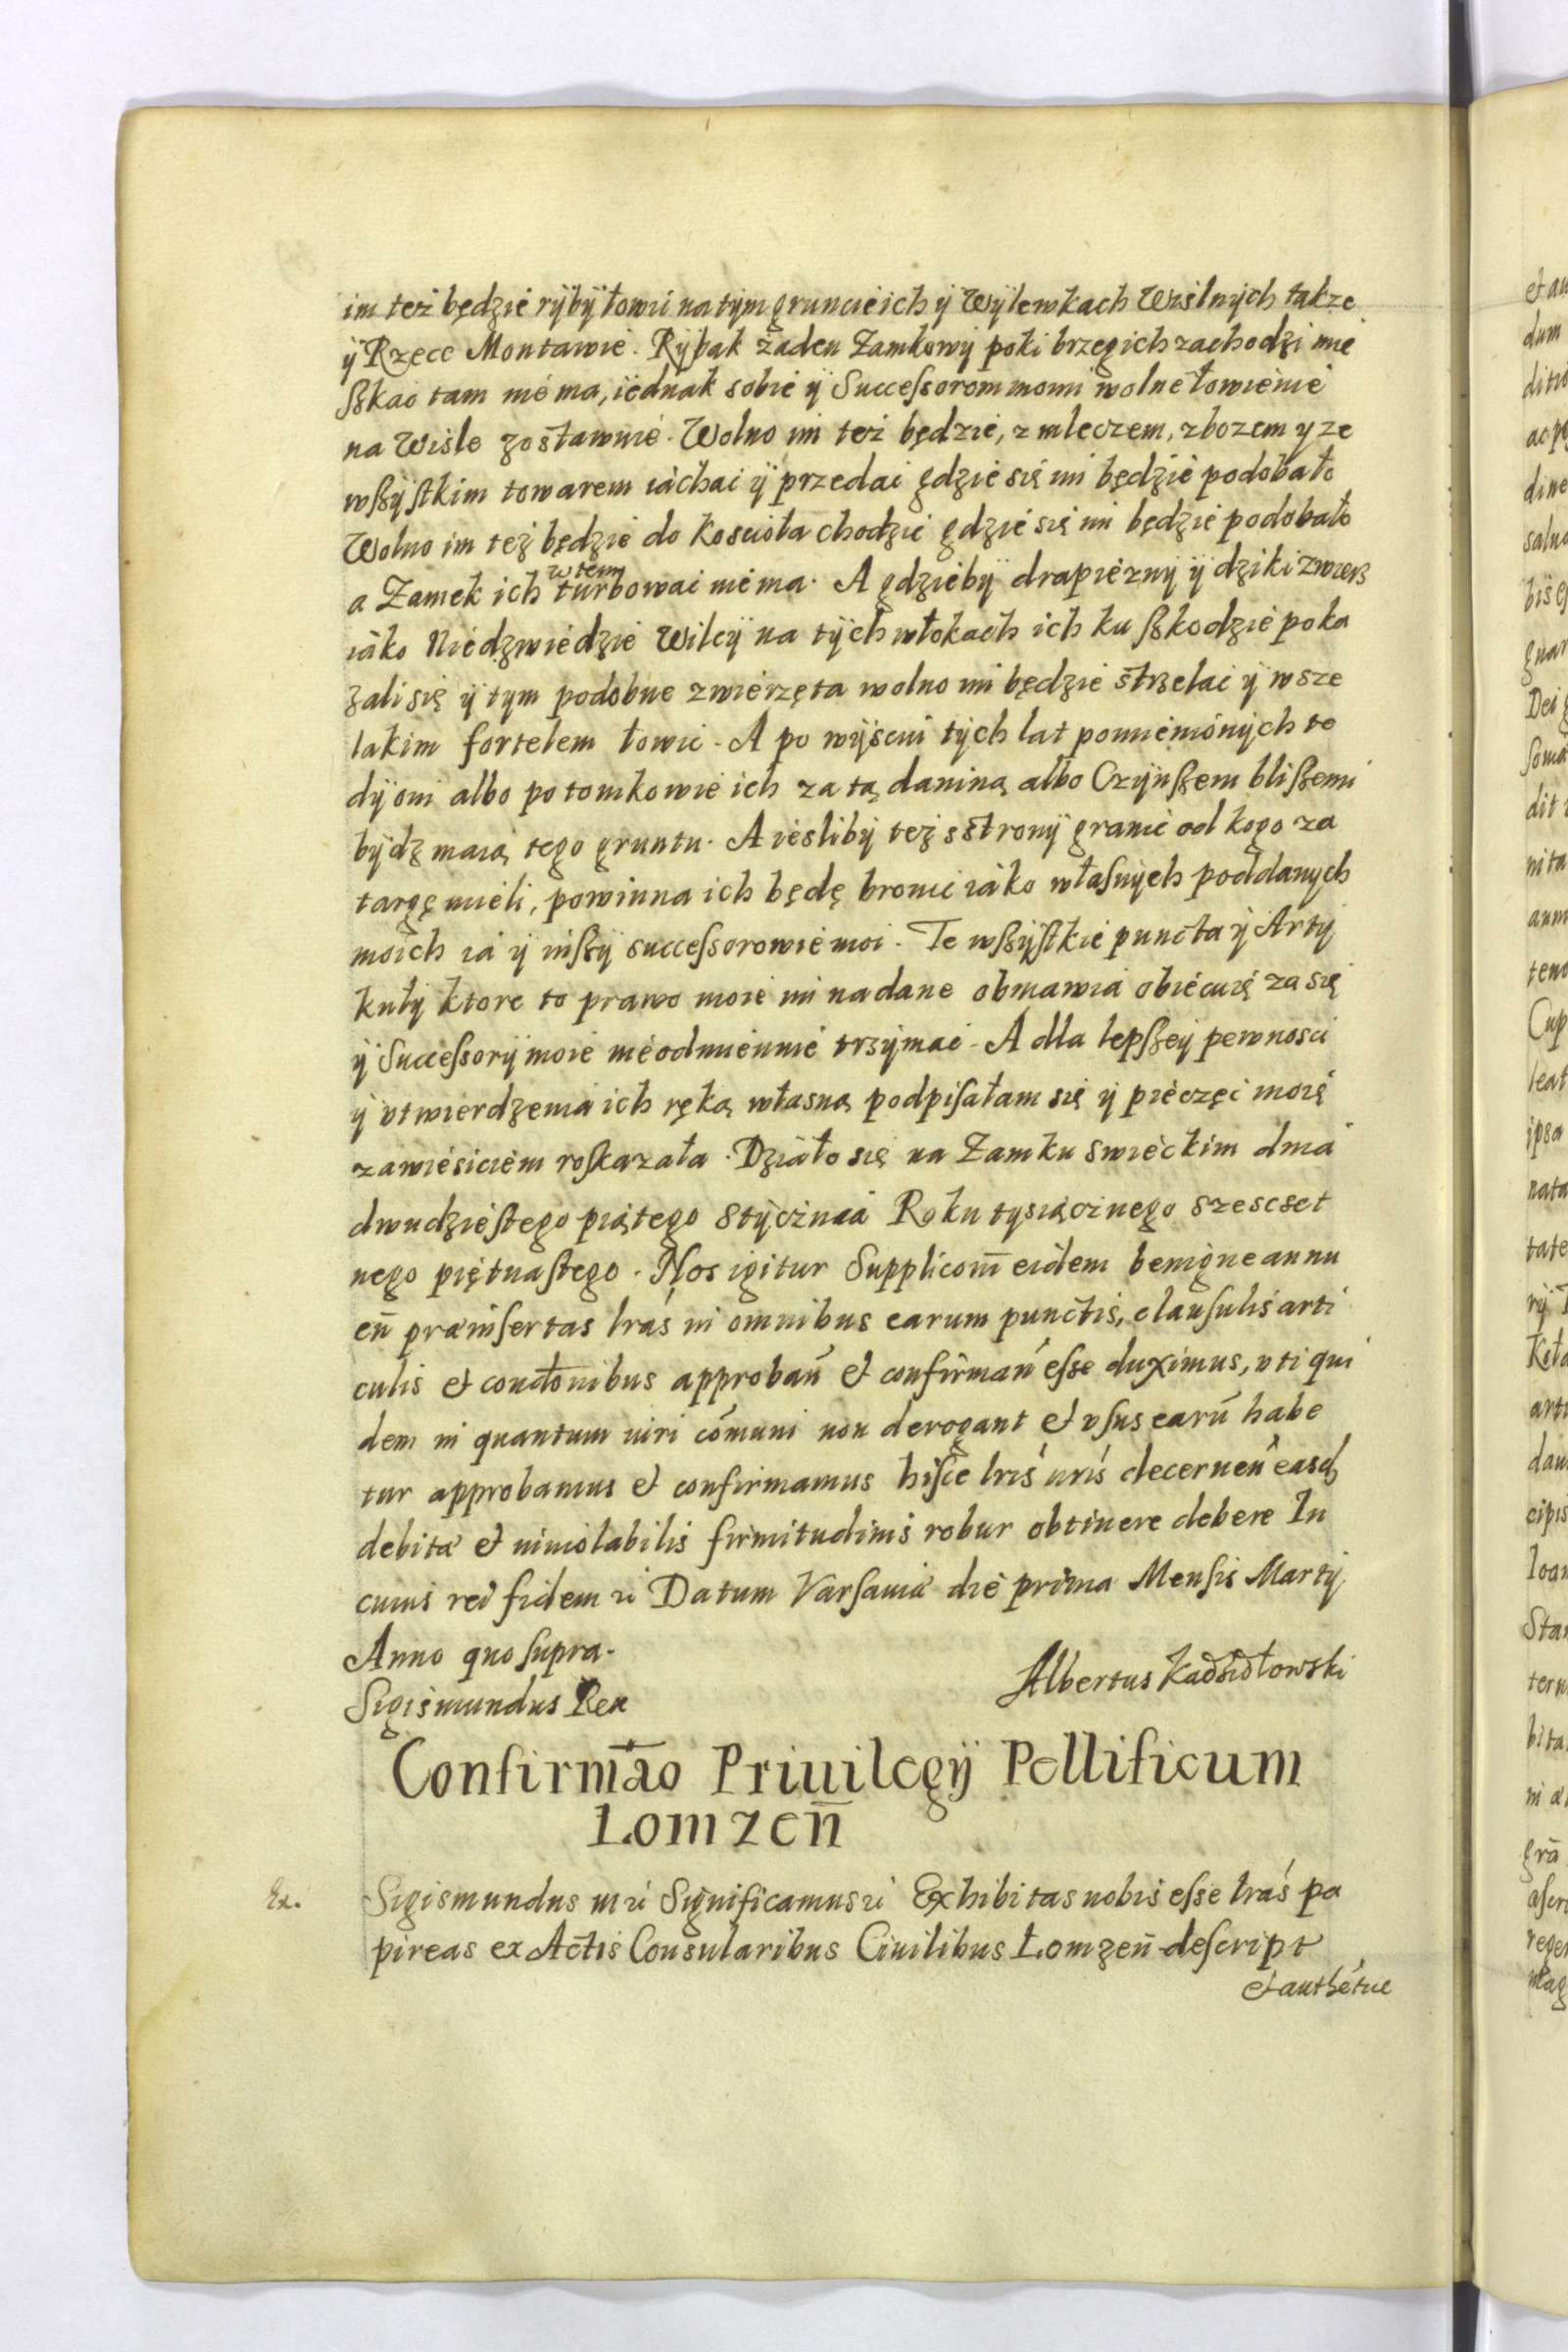 im też będzie ryby łowić na tym gruncie ich ÿ Wÿlewkach Wiślnych także
ÿ Rzece Montawie. Rÿbak żaden Zamkowÿ poki brzeg ich zachodzi mie
szkać tam niema, iednak sobie ÿ Successorom moim wolne łowienie
na Wiśle zostawuię. Wolno im też będzie, z mleczem, zbożem y ze
wszÿstkim towarem iáchać ÿ przedać gdzie się im będzie podobało
Wolno im też będzie do kościoła chodzić gdzie się im będzie podobało
a Zamek ich wtem turbować niema. A gdzieby drapiezny ÿ dziki zwierz
iáko Niedzwiedzie Wilcÿ na tÿch włokach ich ku szkodzie poka
zali się ÿ tym podobne zwierzęta wolno im będzie strzelać ÿ wsze
lakim fortelem łowić. A po wÿściu tÿch lat pomienionÿch te
dÿ oni albo potomkowie ich za tą daniną albo Czÿnszem bliszemi
bÿdz maią tego gruntu. A ieslibÿ też s stronÿ granic od kogo za
targę mieli, powinna ich będę bronić iáko własnÿch poddanych
moich iá ÿ inszÿ successorowie moi. Te wszÿstkie puncta ÿ Artÿ
kułÿ ktore to prawo moie im nadane obmawia obiecuię za się
ÿ Successorÿ moie nieodmiennie trzÿmać. A dla lepszeÿ pewnosci
ÿ utwierdzenia ich ręką własną podpisałam się ÿ pieczęć moię
zawiesiciem roskazała. Działo się na Zamku swieckim dnia
dwudziestego piątego Stÿcznia Roku tysiącznego szescset
nego piętnastego. Nos igitur Supplicom̃ eidem benigne annu
eñ præinsertas lrás in omnibus earum punctis, clausulis arti
culis et condtonibus approbañ et confirmañ esse duximus, uti qui
dem in quantum iuri cõmuni non derogant et usus earũ habe
tur approbamus et confirmamus hisce lris nris decerneñ easd
debitæ et inviolabilis firmitudinis robur obtinere debere In
cuius rei fidem &c Datum Varsaviæ die prima Mensis Martÿ
Anno quo supra.
Albertus Kadsidłowski
Sigismundus Rex
Confirmão Priuilegÿ Pellificum
Lomzeñ
Ex. Sigismundus III &c Significamus &c Exhibitas nobis esse lrás pa
pireas ex Actis Consularibus Ciuilibus Łomzeñ descript
et authétice